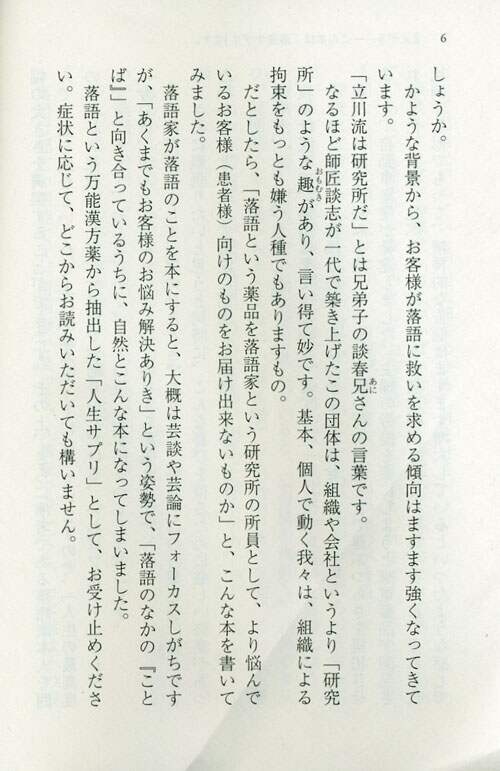 6
しょうか。
かような背景から、お客様が落語に救いを求める傾向はますます強くなってきて
います。
「立川流は研究所だ」とは兄弟子の談春兄さんの言葉です。
あに
なるほど師匠談志が一代で築き上げたこの団体は、組織や会社というより「研究
所」のような趣があり、言い得て妙です。基本、個人で動く我々は、組織による
おもむき
拘束をもっとも嫌う人種でもありますもの。
だとしたら、「落語という薬品を落語家という研究所の所員として、より悩んで
いるお客様（患者様）向けのものをお届け出来ないものか」と、こんな本を書いて
みました。
落語家が落語のことを本にすると、大概は芸談や芸論にフォーカスしがちです
が、「あくまでもお客様のお悩み解決ありき」という姿勢で、「落語のなかの『こと
ば』」と向き合っているうちに、自然とこんな本になってしまいました。
落語という万能漢方薬から抽出した「人生サプリ」として、お受け止めくださ
い。症状に応じて、どこからお読みいただいても構いません。